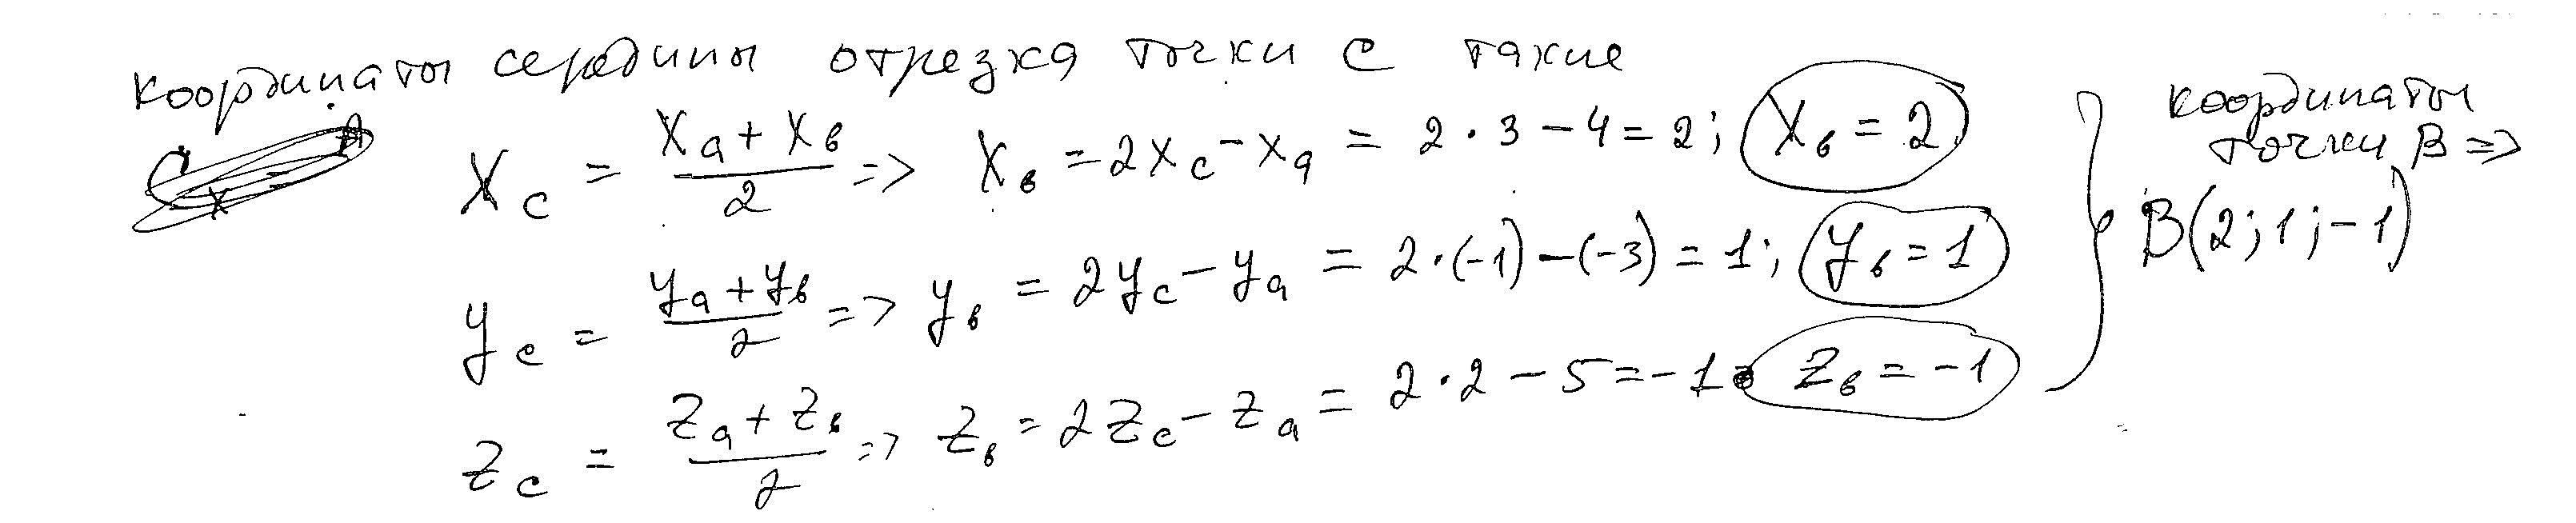 координаты середины отрезка точки С такие
x_c = (x_a + x_в)/2 => x_в = 2x_c - x_a = 2·3 - 4 = 2; x_в = 2
y_c = (y_a + y_в)/2 => y_в = 2y_c - y_a = 2·(-1) - (-3) = 1; y_в = 1
z_c = (z_a + z_в)/2 => z_в = 2z_c - z_a = 2·2 - 5 = -1 z_в = -1
координаты
точки В =>
B(2; 1; -1)